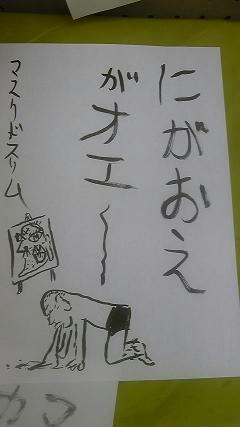 にがおえ
がオエ〜
マスクドスリム